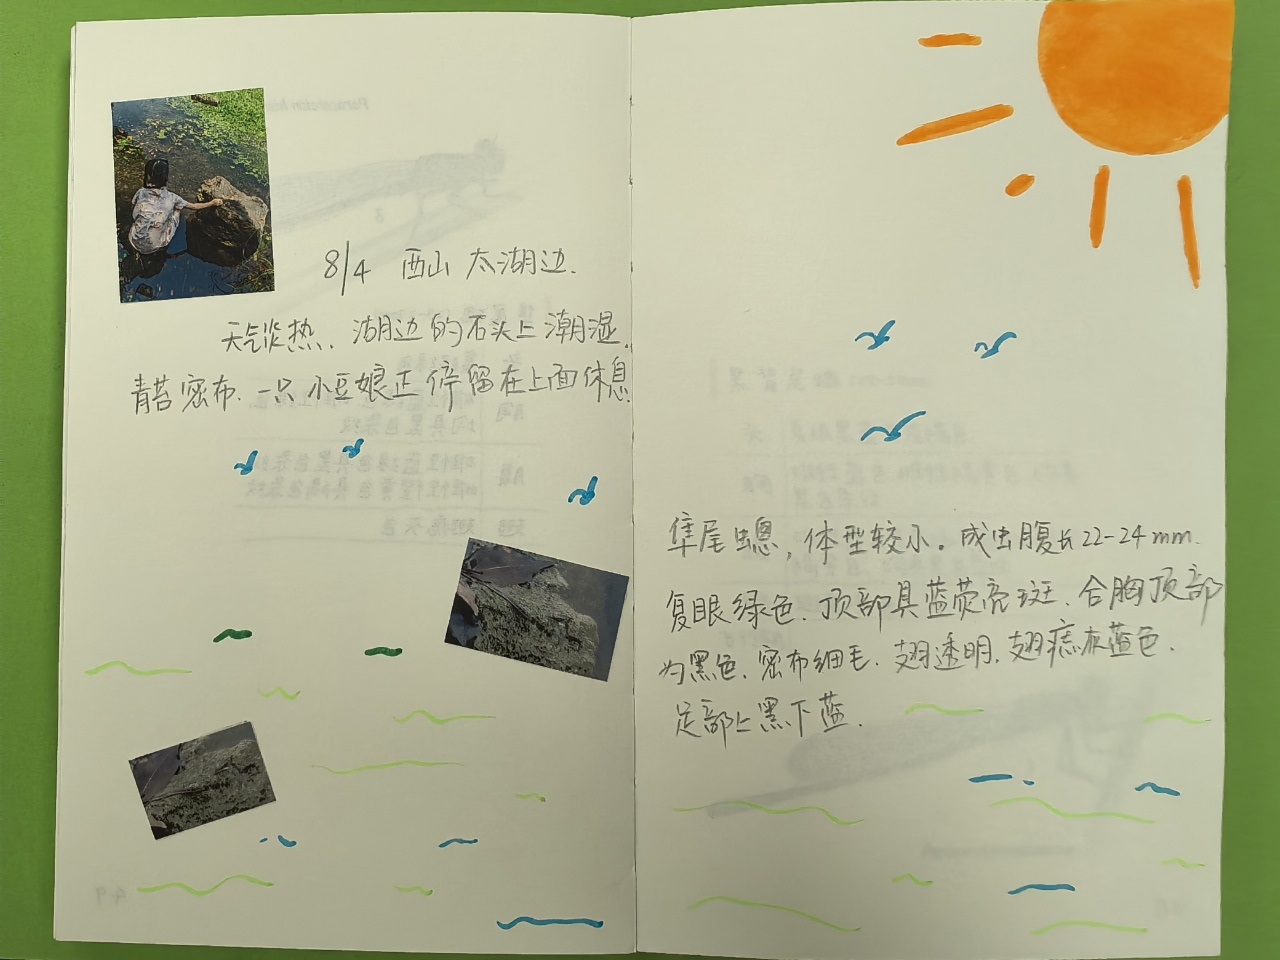 8/4 西山 太湖边.
天气炎热、湖边的石头上潮湿、
青苔密布、一只小豆娘正停留在上面休息
隼尾蟌，体型较小。成虫腹长22-24mm.
复眼绿色、顶部具蓝荧亮斑、合胸顶部
为黑色、密布细毛、翅透明、翅痣灰蓝色、
足部上黑下蓝.